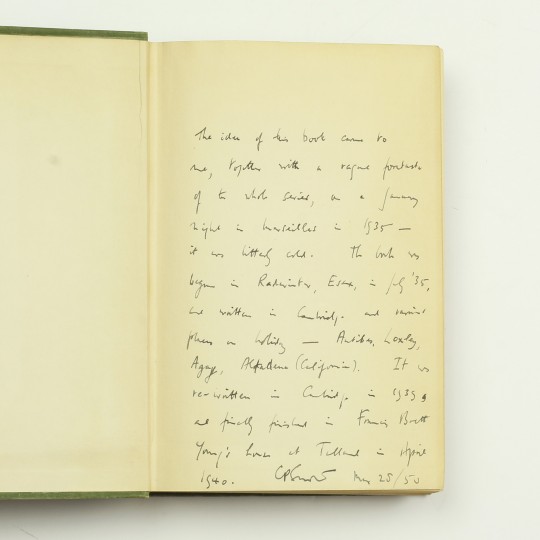 The idea of this book came to
me, together with a vague foretaste
of the whole series, on a January
night in Marseilles in 1935 —
it was bitterly cold. The book was
begun in Radwinter, Essex, in July '35,
and written in Cambridge and various
places on holiday — Antibes, Loxley,
Agay, Altadena (California). It was
re-written in Cambridge in 1939,
and finally finished in Francis Brett
Young's house at Talland in April
1940. CP Snow May 25/50